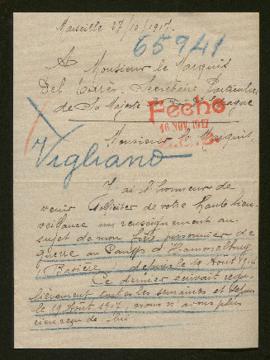 Marseille 27/10/1917.
65941
A Monsieur le Marquis
Del Secrétaire Particulier
de Sa Majesté
Fecho
16 NOV. 1917
Monsieur le Marquis
Vigliano
J'ai l'honneur de
venir de votre haute bien-
veillance un renseignement au
sujet de mon fils prisonnier de
guerre au
depuis le Août
Ce dernier écrivait régu-
lièrement toutes les semaines et depuis
le 19 Août 1917, nous n'avons plus
rien reçu de lui